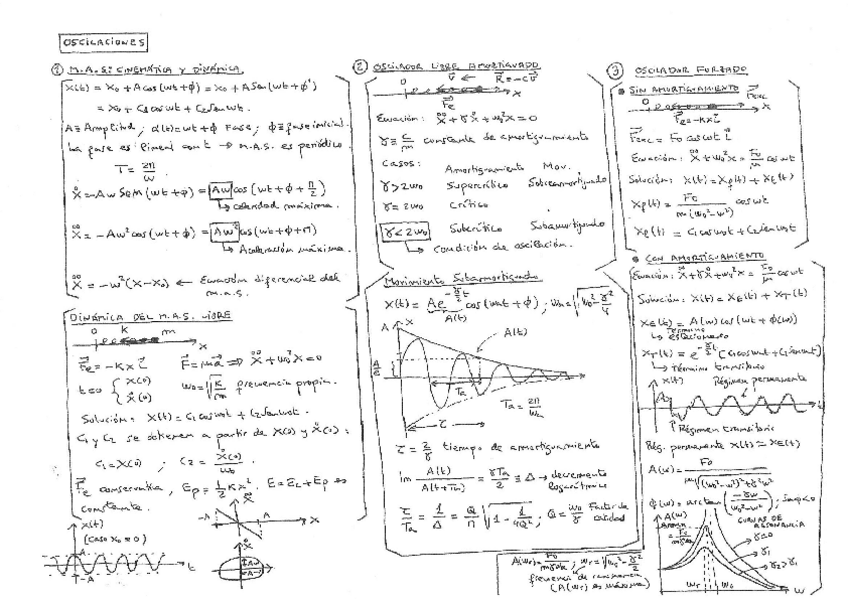 OSCILACIONES
① M.A.S: CINEMÁTICA Y DINÁMICA
X(t) = X₀ + A cos(wt + ϕ) = X₀ + A Sen(wt + ϕ')
= X₀ + C₁ cos wt + C₂ Sen wt.
A ≡ Amplitud ; α(t) = wt + ϕ Fase ; ϕ ≡ fase inicial.
La fase es lineal con t → M.A.S. es periódico
T = 2π/w
Ẋ = -A w Sen(wt + ϕ) = Aw cos(wt + ϕ + π/2)
↳ celeridad máxima.
Ẍ = -Aw² cos(wt + ϕ) = Aw² cos(wt + ϕ + π)
↳ Aceleración máxima.
Ẍ = -w²(X - X₀) ← Ecuación diferencial del
M.A.S.
DINÁMICA DEL M.A.S. LIBRE
0 K m X
F⃗e = -K x i⃗ F⃗ = m a⃗ ⇒ Ẍ + w₀²X = 0
t = 0 { X(0) Ẋ(0) w₀ = √(K/m) frecuencia propia.
Solución: X(t) = C₁ cos w₀t + C₂ Sen w₀t.
C₁ y C₂ se obtienen a partir de X(0) y Ẋ(0) :
C₁ = X(0) ; C₂ = Ẋ(0)/w₀.
F⃗e conservativa, Ep = ½ K x². E = Ec + Ep ⇒
constante.
X(t)
(Caso X₀ = 0)
A
-A
t
-A A X
Ẋ
② OSCILADOR LIBRE AMORTIGUADO
v⃗ ← R⃗ = -c v⃗
0 X
F⃗e
Ecuación: Ẍ + γẊ + w₀²X = 0
γ ≡ c/m constante de amortiguamiento
Casos: Amortiguamiento Mov.
γ > 2w₀ Supercrítico Sobreamortiguado
γ = 2w₀ Crítico
γ < 2w₀ Subcrítico Subamortiguado
↳ Condición de oscilación.
Movimiento Subamortiguado
X(t) = A e^(-γ/2 t) cos(wₐt + ϕ) ; wₐ = √(w₀² - γ²/4)
A(t)
A X
A(t)
A/e
Ta
τ
Ta = 2π/wₐ
τ = 2/γ tiempo de amortiguamiento
ln A(t)/A(t+Ta) = γTa/2 ≡ Δ → decremento
logarítmico
τ/Ta = 1/Δ = Q/π √(1 - 1/4Q²) ; Q = w₀/γ Factor de
calidad
A(wr) = F₀/mγwₐ ; wr = √(w₀² - γ²/2)
frecuencia de resonancia
(A(wr) es máxima)
③ OSCILADOR FORZADO
• SIN AMORTIGUAMIENTO F⃗exc
0 X
F⃗e = -K x i⃗
F⃗exc = F₀ cos wt i⃗
Ecuación: Ẍ + w₀²X = F₀/m cos wt
Solución: X(t) = Xp(t) + Xℓ(t)
Xp(t) = F₀/m(w₀² - w²) cos wt
Xℓ(t) = C₁ cos w₀t + C₂ Sen w₀t
• CON AMORTIGUAMIENTO
Ecuación: Ẍ + γẊ + w₀²X = F₀/m cos wt
Solución: X(t) = XE(t) + XT(t)
XE(t) = A(w) cos(wt + ϕ(w))
↳ Término estacionario
XT(t) = e^(-γ/2 t) [C₁ cos wₐt + C₂ Sen wₐt]
↳ Término transitorio
X(t) Régimen permanente
t
↳ Régimen transitorio
Rég. permanente X(t) ≃ XE(t)
A(w) = F₀/m√((w₀² - w²)² + γ²w²)
ϕ(w) = arctan(-γw/(w₀² - w²)) ; Sen ϕ < 0
A(w)
CURVAS DE
RESONANCIA
γ = 0
γ₁
γ₂ > γ₁
wr w₀ w